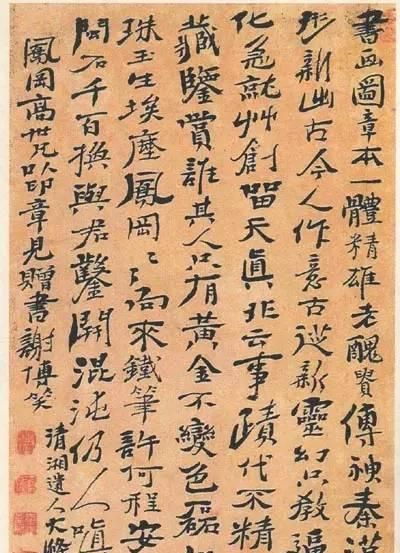 書画圖章本一體精雄老醜貴傳神秦漢
形新出古今人作意古從新靈幻只教逼
化急就艸創留天真非云事蹟代不精
藏鑒賞誰其人只有黃金不變色磊
珠玉生埃塵鳳岡々々向來鐵筆許何程安
石千百換與君鑿開混沌仍人嗔
鳳岡高世兄以印章見贈書謝博笑
清湘遺人大滌